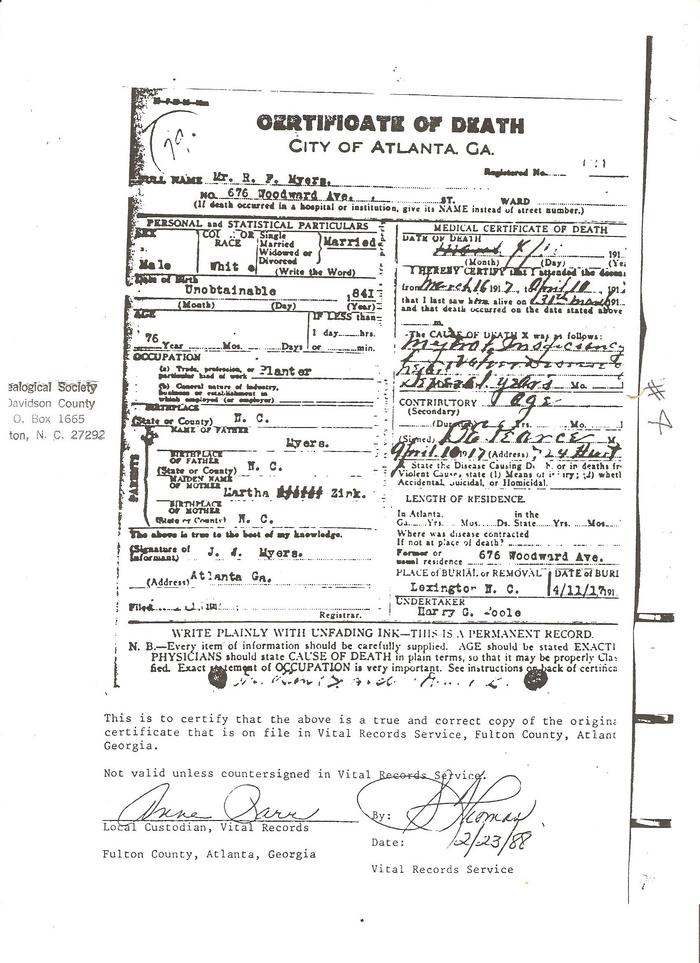 CERTIFICATE OF DEATH
CITY OF ATLANTA, GA.
Registered No.
FULL NAME Mr. R. F. Myers.
NO. 676 Woodward Ave. ST. WARD
(If death occurred in a hospital or institution, give its NAME instead of street number.)
PERSONAL and STATISTICAL PARTICULARS
SEX
Male
RACE
White
Single
Married
Widowed or
Divorced
(Write the Word)
Married
Date of Birth
Unobtainable 1841
(Month) (Day) (Year)
AGE
76
Year Mos. Days
IF LESS than
1 day hrs.
or min.
OCCUPATION
(a) Trade, profession, or
particular kind of work
Planter
(b) General nature of industry,
business or establishment in
which employed (or employer)
BIRTHPLACE
(State or County) N. C.
PARENTS
NAME OF FATHER
Myers.
BIRTHPLACE
OF FATHER
(State or County) N. C.
MAIDEN NAME
OF MOTHER
Martha Zink.
BIRTHPLACE
OF MOTHER
(State or County) N. C.
The above is true to the best of my knowledge.
(Signature of
Informant) Myers.
(Address) Atlanta Ga.
Filed 191
Registrar.
MEDICAL CERTIFICATE OF DEATH
DATE OF DEATH
191
(Month) (Day)
I HEREBY CERTIFY that I attended the
from March 16 1917, to April 10, 191
that I last saw him alive on 31st March 191
and that death occurred on the date stated above
m.
The CAUSE OF DEATH X was as follows:
several years Mo.
CONTRIBUTORY Age
(Secondary)
(Signed)
April 10 1917 (Address)
State the Disease Causing or in deaths
Violent Cause, state (1) Means of
Accidental, Suicidal, or Homicidal.
LENGTH OF RESIDENCE.
In Atlanta. in the
Ga. Yrs. Mos. Ds. State. Yrs. Mos.
Where was disease contracted
If not at place of death?
Former or
usual residence 676 Woodward Ave.
PLACE of BURIAL or REMOVAL
Lexington N. C.
DATE OF
4/11/17 191
UNDERTAKER
Harry G.
WRITE PLAINLY WITH UNFADING INK—THIS IS A PERMANENT RECORD.
N. B.—Every item of information should be carefully supplied. AGE should be stated
PHYSICIANS should state CAUSE OF DEATH in plain terms, so that it may be properly
fied. Exact statement of OCCUPATION is very important. See instructions on back of
Society
Davidson County
O. Box 1665
ton, N. C. 27292
#4
This is to certify that the above is a true and correct copy of the
certificate that is on file in Vital Records Service, Fulton County,
Georgia.
Not valid unless countersigned in Vital Records Service.
Anne Barr
Local Custodian, Vital Records
Fulton County, Atlanta, Georgia
By: S Thomas
Date: 2/23/88
Vital Records Service